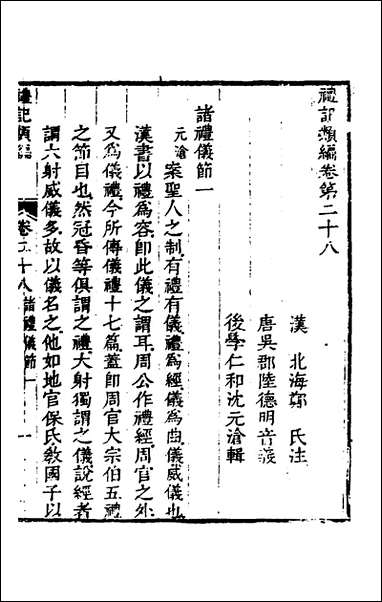 禮記類編卷第二十八
漢 北海鄭 氏注
唐吳郡陸德明音義
後學仁和沈元滄輯
諸禮儀節一
元滄
案聖人之制有禮有儀禮為經儀為曲儀威儀也
漢書以禮為容即此儀之謂耳周公作禮經周官之外
又為儀禮今所傳儀禮十七篇蓋即周官大宗伯五禮
之節目也然冠昏等俱謂之禮大射獨謂之儀說經者
謂大射威儀多故以儀名之他如地官保氏教國子以
禮記類編
卷二十八諸禮儀節一
一